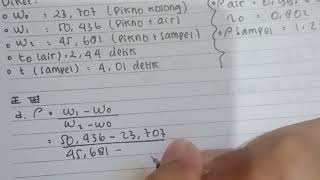 Diket:
• W₀ = 23,707 (Pikno kosong)
• W₁ = 50,436 (Pikno + air)
• W₂ = 45,681 (Pikno + sampel)
• to (air) = 2,44 detik
• t (sampel) = 4,01 detik
• ρ air =
= 0,802
ρ sampel =
a. ρ = W₁ - W₀
W₂ - W₀
= 50,436 - 23,707
45,681 -